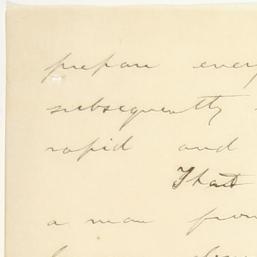 prepare every
subsequently
rapid and
That
a man from